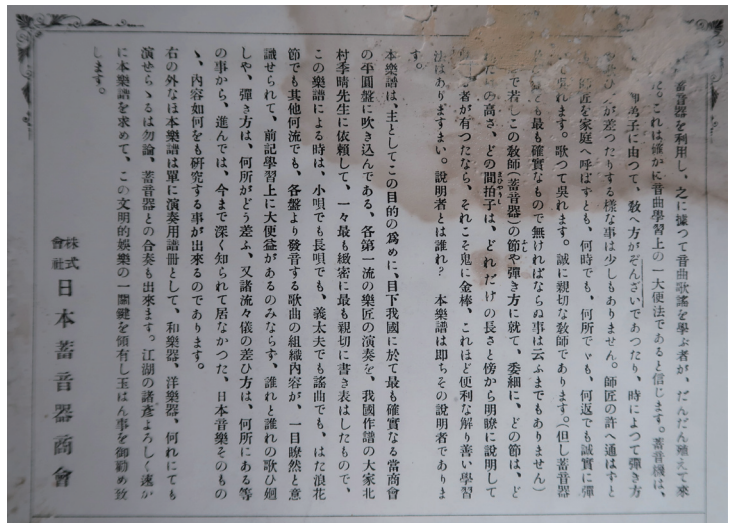 蓄音器を利用し、之に據つて音曲歌謠を學ぶ者が、だんだん殖えて來
た。これは確かに音曲學習上の一大便法であると信じます。蓄音機は、
御弟子に由つて、敎へ方がぞんざいであつたり、時によつて彈き方
や歌ひ方が差つたりする樣な事は少しもありません。師匠の許へ通はずと
も、師匠を家庭へ呼ばずとも、何時でも、何所でゝも、何返でも誠實に彈
いて吳れます。歌つて吳れます。誠に親切な敎師であります。(但し蓄音器
最も確實なもので無ければならぬ事は云ふまでもありません)
で若しこの敎師(蓄音器)の節や彈き方に就て、委細に、どの節は、ど
れだけの高さ、どの間拍子は、どれだけの長さと傍から明瞭に說明して
者が有つたなら、それこそ鬼に金棒、これほど便利な解り善い學習
法はありますまい。說明者とは誰れ? 本樂譜は卽ちその說明者でありま
す。
本樂譜は、主としてこの目的の爲めに、目下我國に於て最も確實なる當商會
の平圓盤に吹き込んである、各第一流の樂匠の演奏を、我國作譜の大家北
村季晴先生に依賴して、一々最も緻密に最も親切に書き表はしたもので、
この樂譜による時は、小唄でも長唄でも、義太夫でも謠曲でも、はた浪花
節でも其他何流でも、各盤より發音する歌曲の組織內容が、一目瞭然と意
識せられて、前記學習上に大便益があるのみならず、誰れと誰れの歌ひ廻
しや、彈き方は、何所がどう差ふ、又諸流々儀の差ひ方は、何所にある等
の事から、進んでは、今まで深く知られて居なかつた、日本音樂そのもの
ゝ、內容如何をも硏究する事が出來るのであります。
右の外なほ本樂譜は單に演奏用譜冊として、和樂器、洋樂器、何れにても
演せらるゝは勿論、蓄音器との合奏も出來ます。江湖の諸彥よろしく速か
に本樂譜を求めて、この文明的娛樂の一關鍵を領有し玉はん事を御勸め致
します。
株式會社 日本蓄音器商會